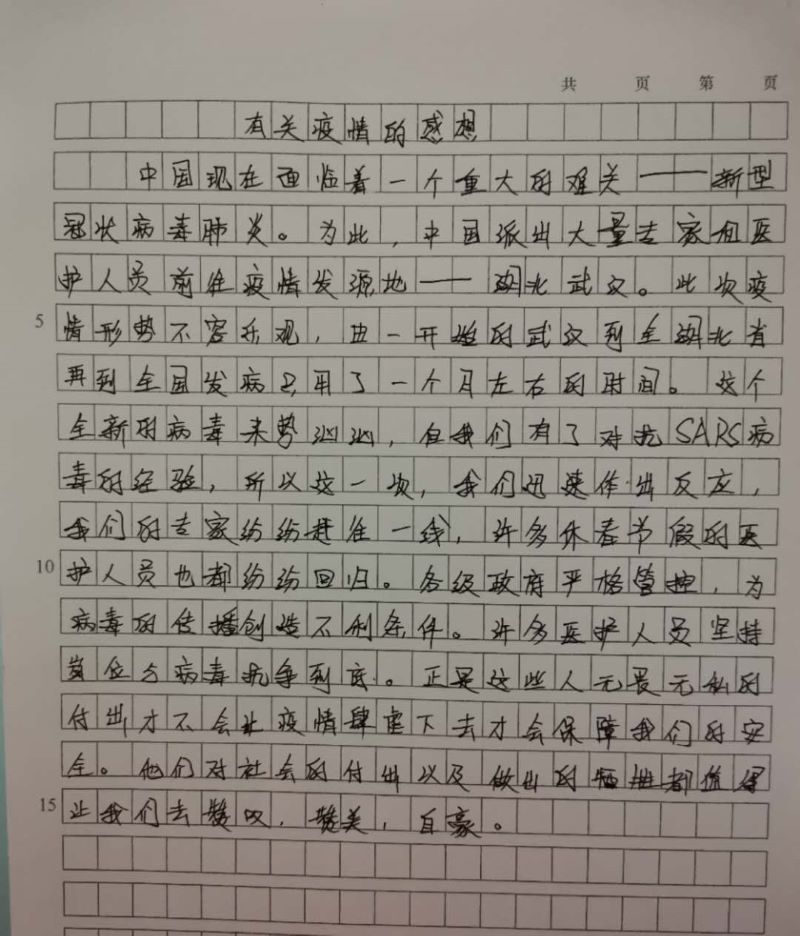 共 页 第 页
有关疫情的感想
中国现在面临着一个重大的难关——新型
冠状病毒肺炎。为此,中国派出大量专家和医
护人员前往疫情发源地——湖北武汉。此次疫
5 情形势不容乐观,由一开始的武汉到全湖北省
再到全国发病只用了一个月左右的时间。这个
全新的病毒来势汹汹,但我们有了对抗SARS病
毒的经验,所以这一次,我们迅速作出反应,
我们的专家纷纷赶往一线,许多休春节假的医
10 护人员也都纷纷回归。各级政府严格管控,为
病毒的传播创造不利条件。许多医护人员坚持
岗位与病毒抗争到底。正是这些人无畏无私的
付出才不会让疫情肆虐下去才会保障我们的安
全。他们对社会的付出以及做出的牺牲都值得
15 让我们去赞叹,赞美,自豪。